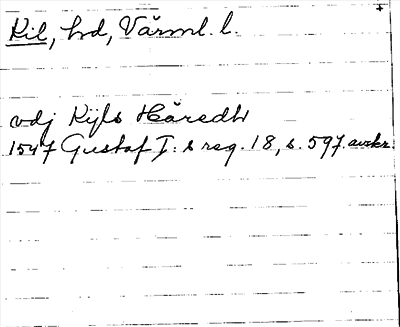 Kil, hd, Värml. l.
vdj Kijls Häredh
1547 Gustaf I: s reg. 18, s. 597. avskr.